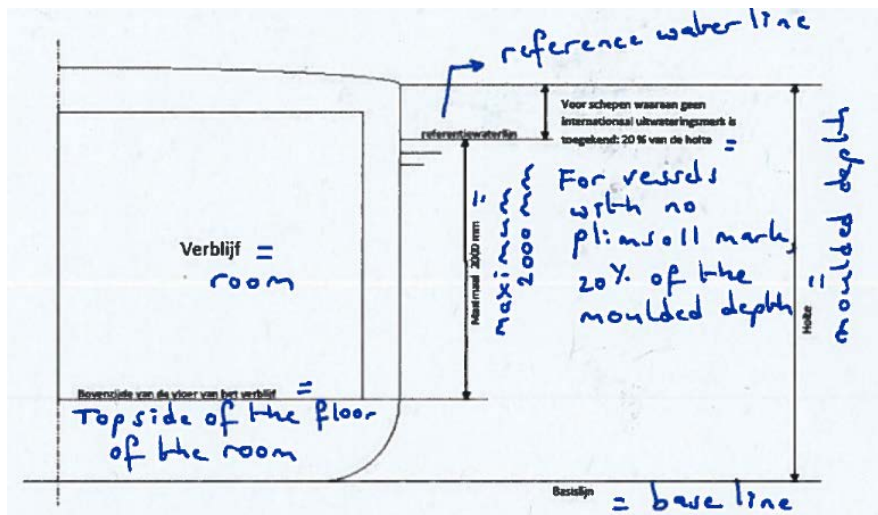 reference water line
Voor schepen waaraan geen
internationaal uitwateringsmerk is
toegekend: 20 % van de holte =
referentiewaterlijn
For vessels
with no
plimsoll mark,
20% of the
moulded depth
Verblijf =
room
Maximaal 2000 mm =
maximum
2000 mm
Holte =
moulded depth
Bovenzijde van de vloer van het verblijf =
Topside of the floor
of the room
Basislijn
= base line